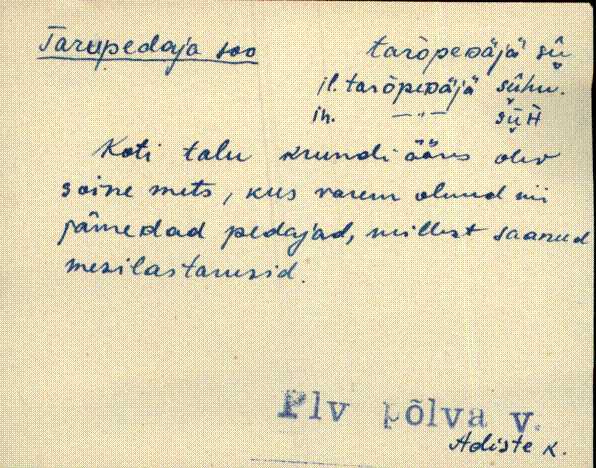 Tarupedaja soo
tarõpeᴅäjä sü̬
il. tarõpeᴅäjä sü̬hü.
in. — " — sü̬H
Koti talu krundi ääres olev
soine mets, kus varem olnud nii
jämedad pedajad, millest saanud
mesilastarusid.
Plv põlva v.
Adiste k.